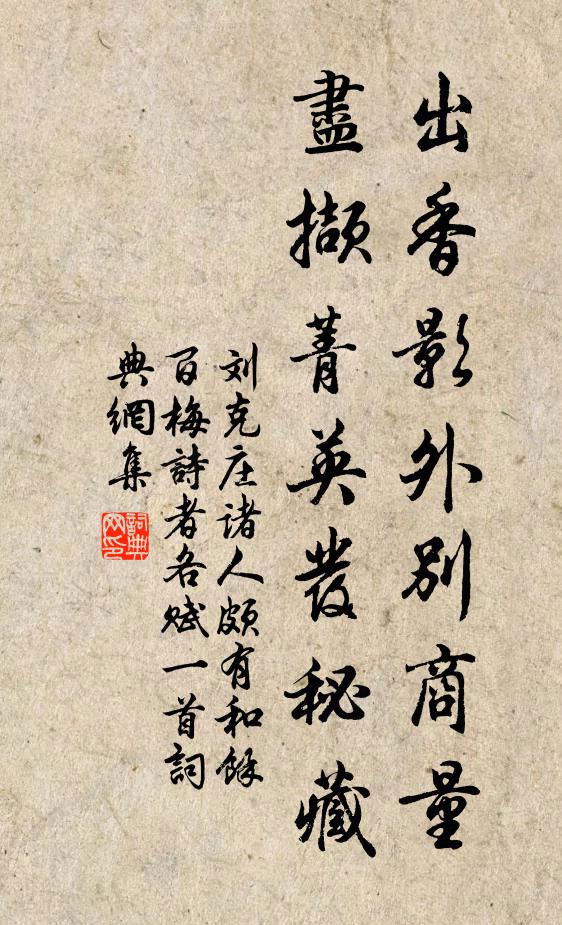 出香影外別商量
盡擷菁英發秘藏
刘克庄诸人颇有和馀
百梅詩者各赋一首詞
典網集
詞典網印